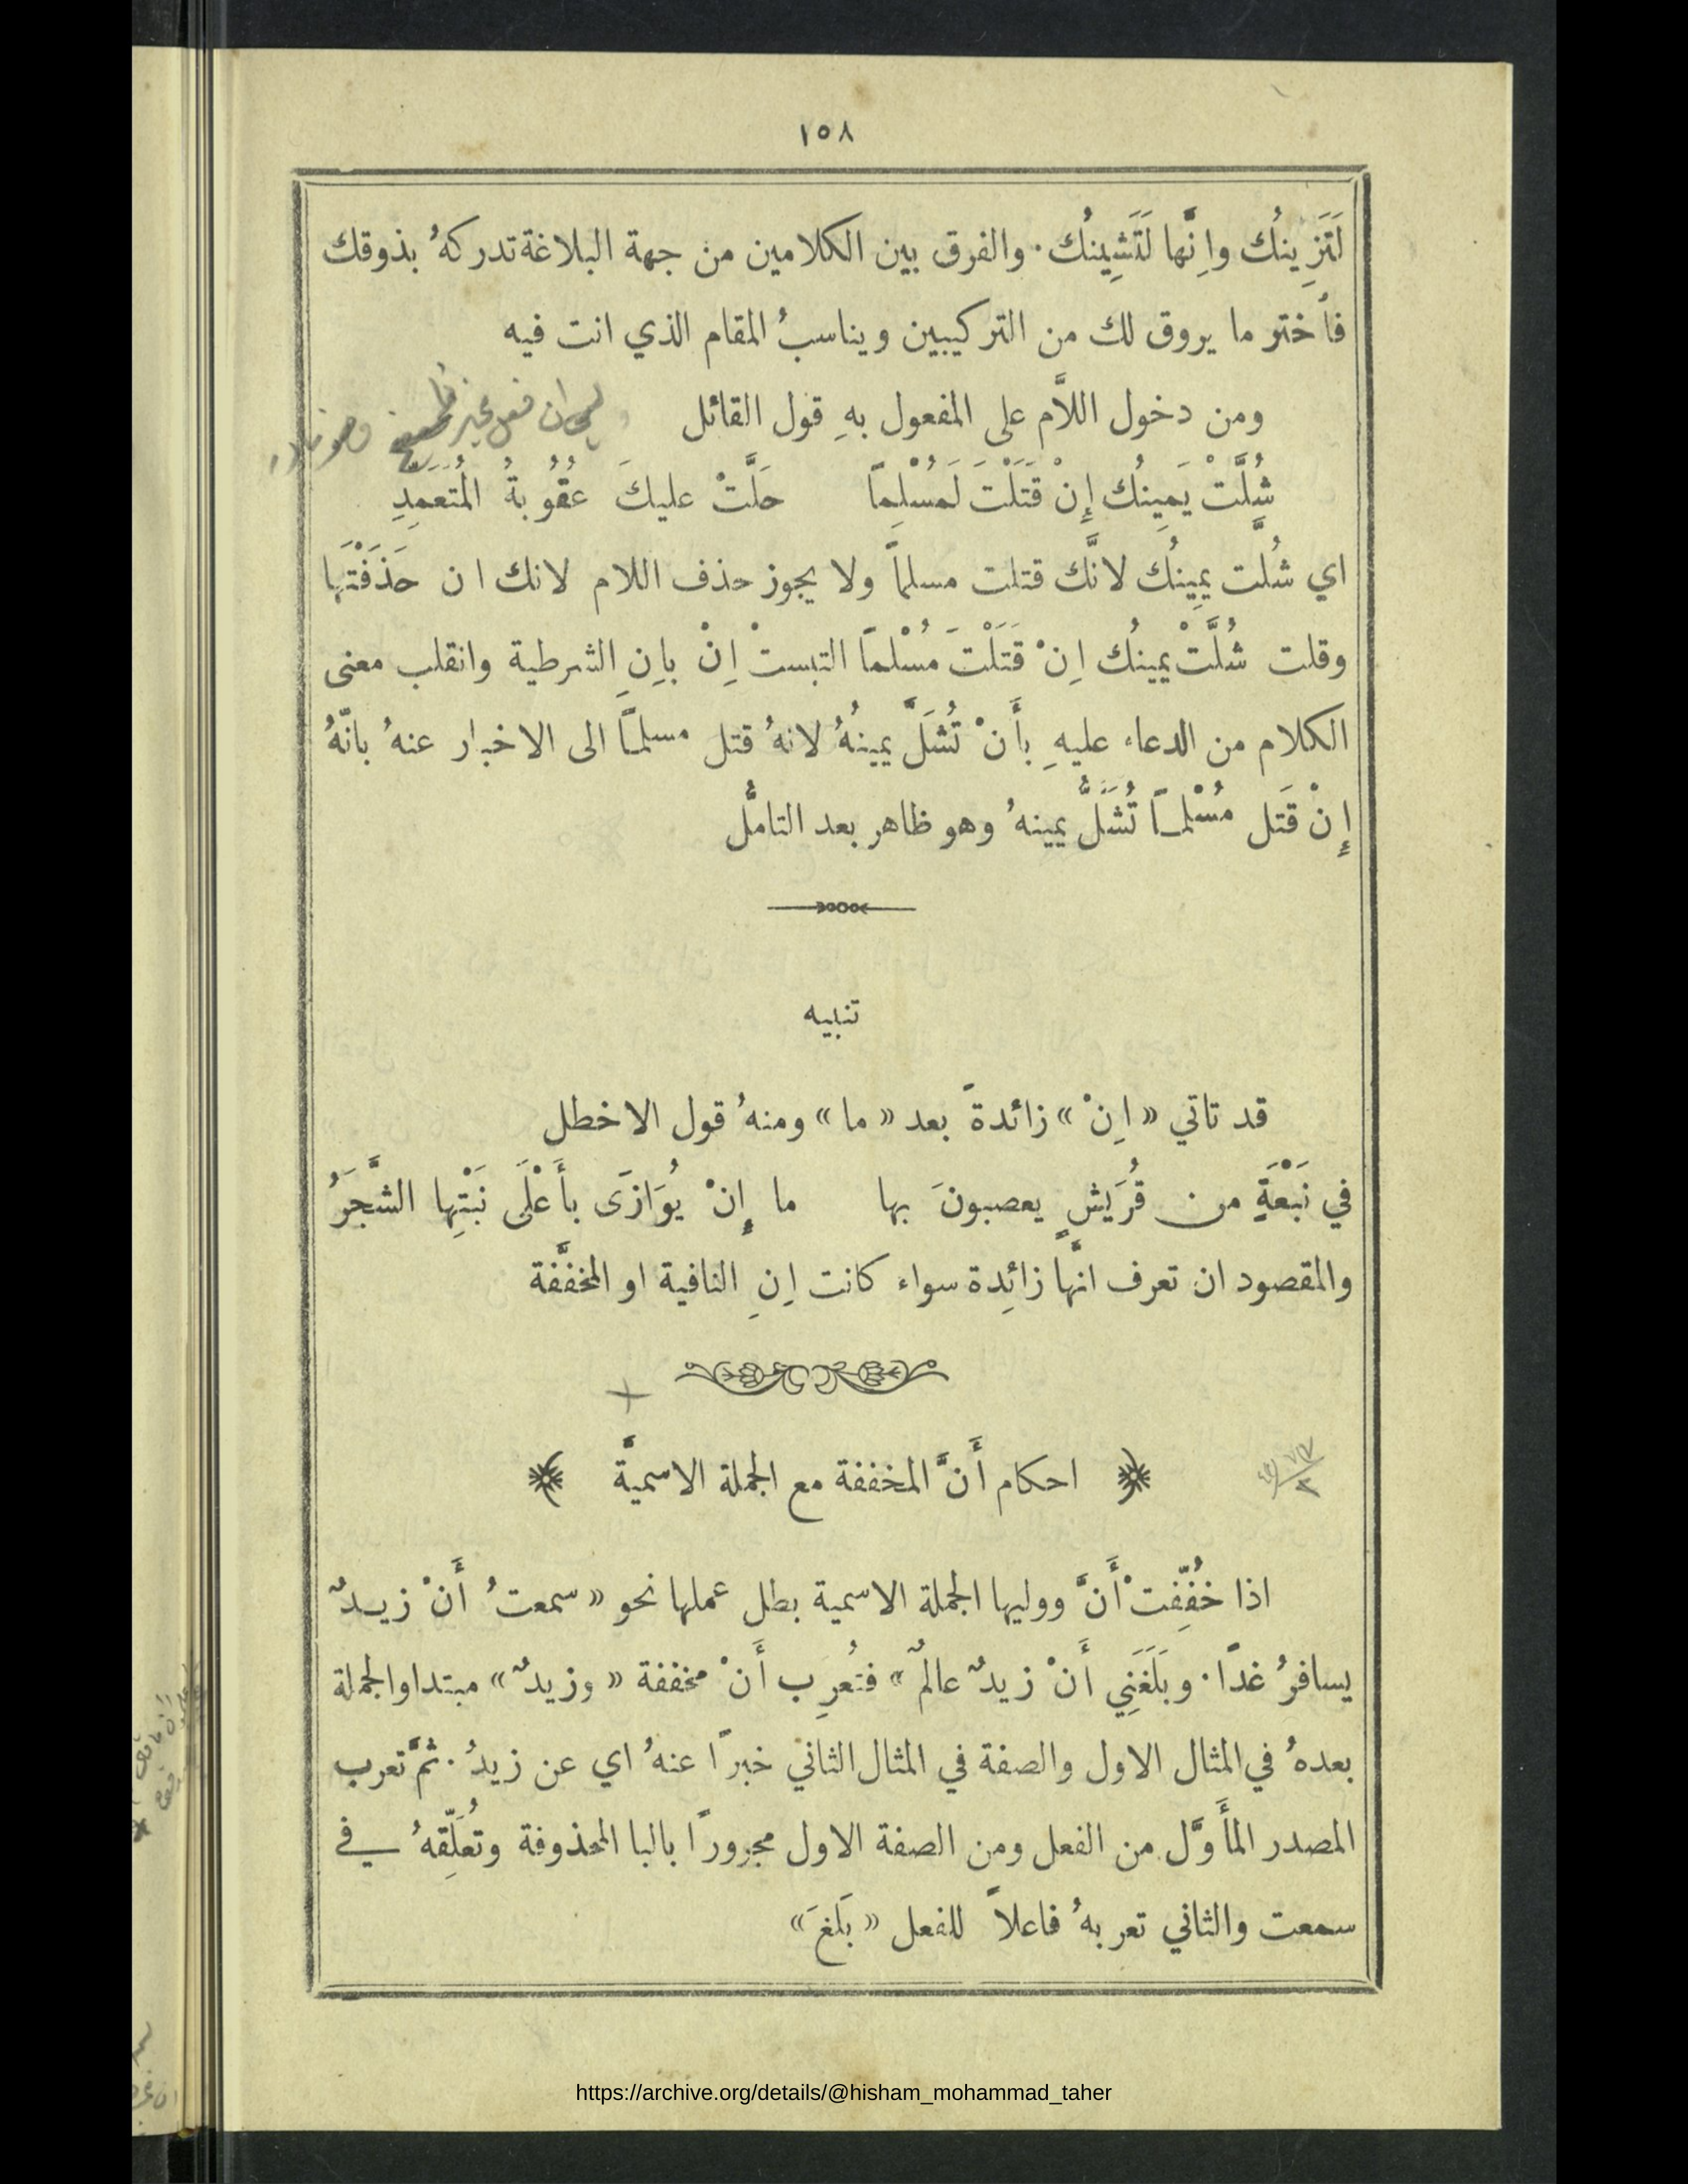 ١٥٨
لَتَزِينُك واِنَّها لَتَشِينُك. والفرق بين الكلامين من جهة البلاغة تدركهُ بذوقك
فاُختر ما يروق لك من التركيبين ويناسبُ المقام الذي انت فيه
ومن دخول اللاَّم على المفعول بهِ قول القائل
شُلَّتْ يَمِينُك إِنْ قَتَلْتَ لَمُسْلِمًا حَلَّتْ عليكَ عُقُوبةُ المُتَعَمِّدِ
اي شُلَّت يمِينُك لانَّك قتلت مسلماً ولا يجوز حذف اللام لانك ان حَذَفْتَها
وقلت شُلَّتْ يمينُك اِنْ قَتَلْتَ مُسْلماً التبستْ اِنْ باِنِ الشرطية وانقلب معنى
الكلام من الدعاء عليهِ بأَنْ تُشَلَّ يمينُهُ لانهُ قتل مسلماً الى الاخبار عنهُ بانّهُ
إِنْ قَتَل مُسْلماً تُشَلَُّ يمينهُ وهو ظاهر بعد التامُّل
تنبيه
قد تاتي « اِنْ » زائدةً بعد « ما » ومنهُ قول الاخطل
في نَبْعَةٍ من قُرَيشٍ يعصبونَ بها ما إِنْ يُوَازَى بأَعْلَى نَبْتِها الشَّجَرُ
والمقصود ان تعرف انَّها زائِدة سواء كانت اِنِ النافية او المخفَّفة
احكام أَنَّ المخففة مع الجملة الاسميَّة
اذا خُفِّفتْ أَنَّ ووليها الجملة الاسمية بطل عملها نحو « سمعتُ أَنْ زيدٌ
يسافرُ غدًا. وبَلَغَنِي أَنْ زيدٌ عالمٌ » فتُعرِب أَنْ مخففة « وزيدٌ » مبتدا والجملة
بعدهُ في المثال الاول والصفة في المثال الثاني خبرًا عنهُ اي عن زيدُ. ثمَّ تعرب
المصدر المأَوَّل من الفعل ومن الصفة الاول مجرورًا بالبا المحذوفة وتُعَلِّقهُ في
سمعت والثاني تعربهُ فاعلاً للفعل « بَلغَ »
https://archive.org/details/@hisham_mohammad_taher